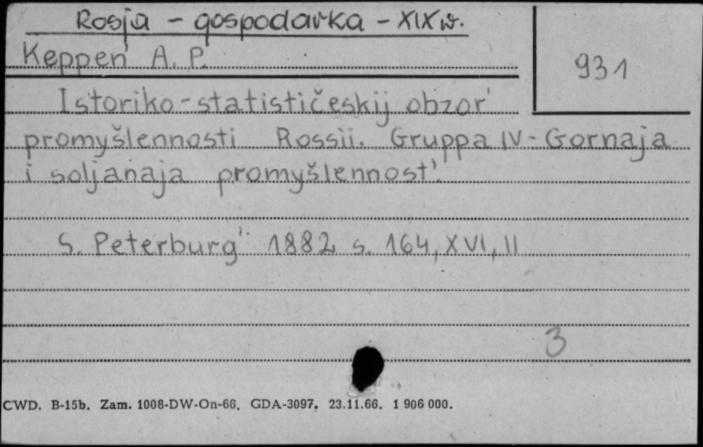 Rosja - gospodarka - XIX w.
Keppen A. P.
931
Istoriko-statističeskij obzor'
promyšlennosti Rossii. Gruppa IV - Gornaja
i soljanaja promyšlennost'.
S. Peterburg" 1882 s. 164, XVI, II
3
CWD. B-15b. Zam. 1008-DW-On-66. GDA-3097. 23.11.66. 1 906 000.